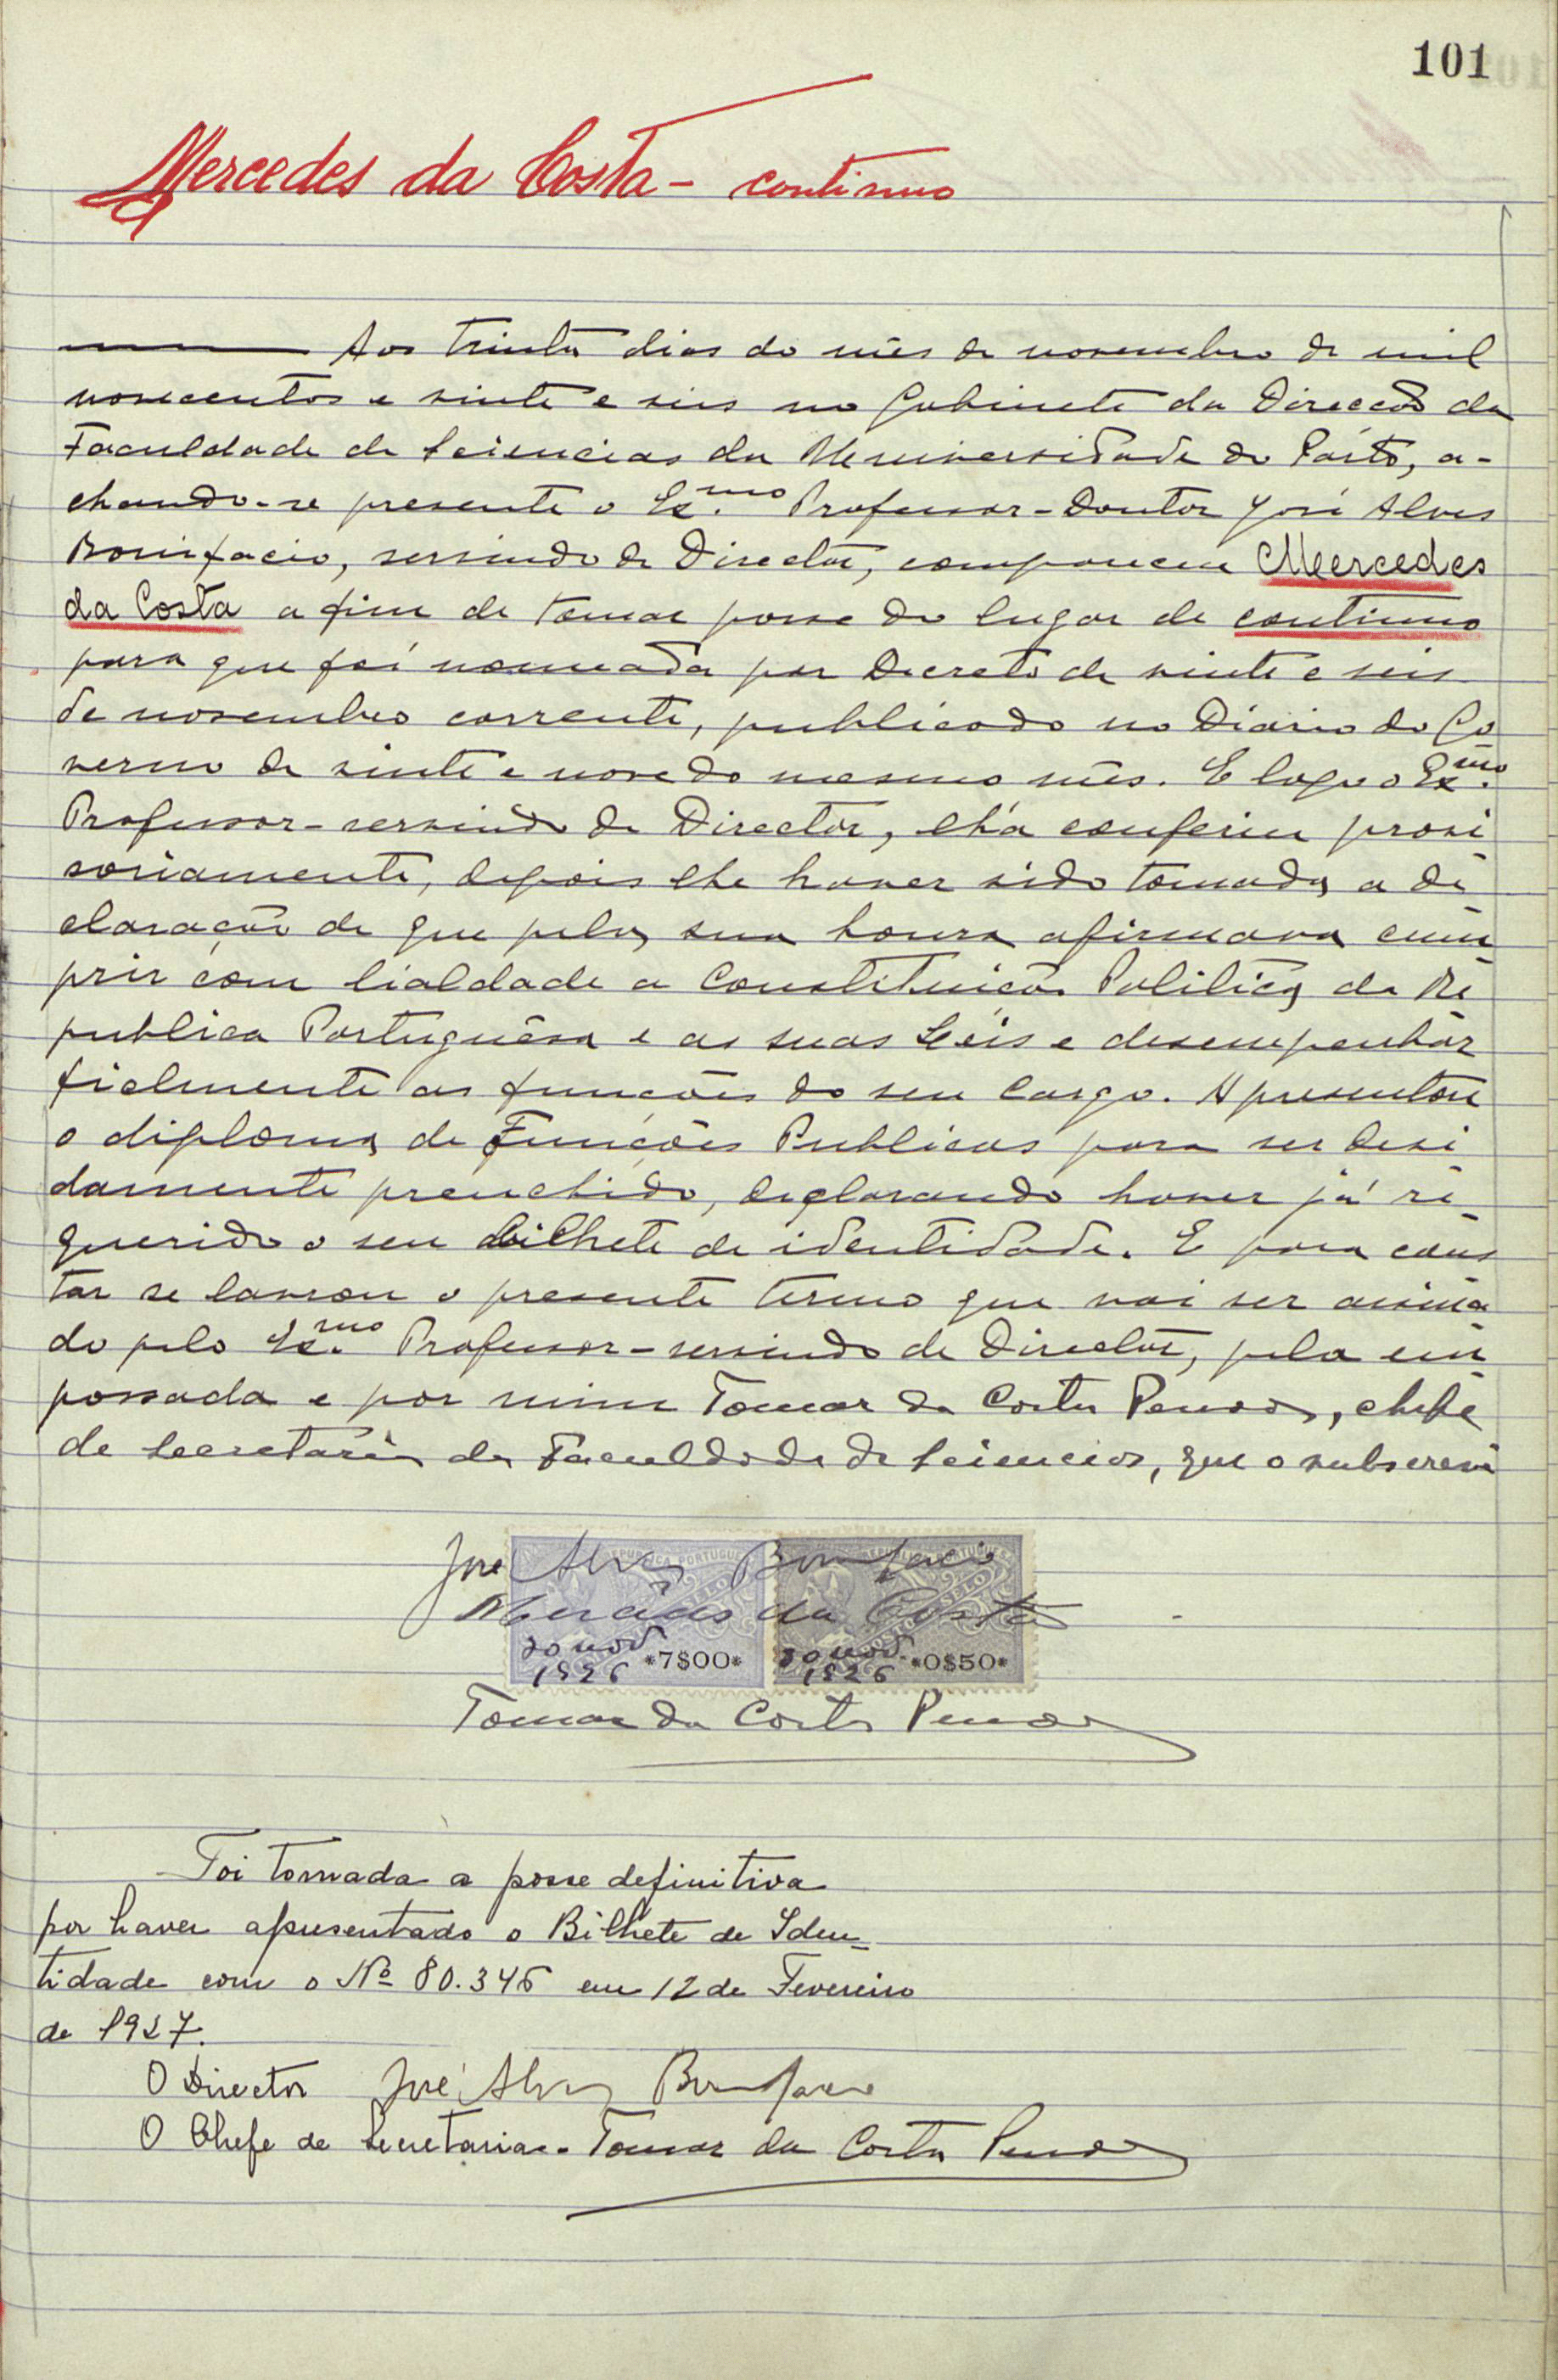 101
Mercedes da Costa - continuo
Aos trinta dias do mês de novembro de mil
novecentos e vinte e seis no Gabinete da Direcção da
Faculdade de Sciencias da Universidade do Pôrto, a-
chando-se presente o Ex.mo Professor-Doutor José Alves
Bonifacio, servindo de Director, compareceu Mercedes
da Costa a fim de tomar posse do lugar de continuo
para que foi nomeada por Decreto de vinte e seis
de novembro corrente, publicado no Diario do Go
verno de vinte e nove do mesmo mês. E logo o Ex.mo
Professor-servindo de Director, lh'a conferiu provi
soriamente, depois lhe haver sido tomada a de
claração de que pela sua honra afirmava cum
prir com lialdade a Constituição Politica da Re
publica Portuguêsa e as suas Leis e desempenhar
fielmente as funcões do seu cargo. Apresentou
o diploma de Funções Publicas para ser devi
damente prenchido, declarando haver já re
querido o seu bilhete de identidade. E para cons
tar se lavrou o presente termo que vai ser assina
do pelo Ex.mo Professor-servindo de Director, pela em
possada e por mim Tomaz da Costa, chefe
de Secretaria da Faculdade de Sciencias, que o subscrevi
José Alves Bonifacio
Mercêdes da Costa
30 nov. 1926 *7$00*
30 nov. 1926 *0$50*
Tomaz da Costa
Foi tomada a posse definitiva
por haver apresentado o Bilhete de Iden-
tidade com o Nº 80.346 em 12 de Fevereiro
de 1927.
O Director José Alves Bonifacio
O Chefe de Secretaria - Tomaz da Costa